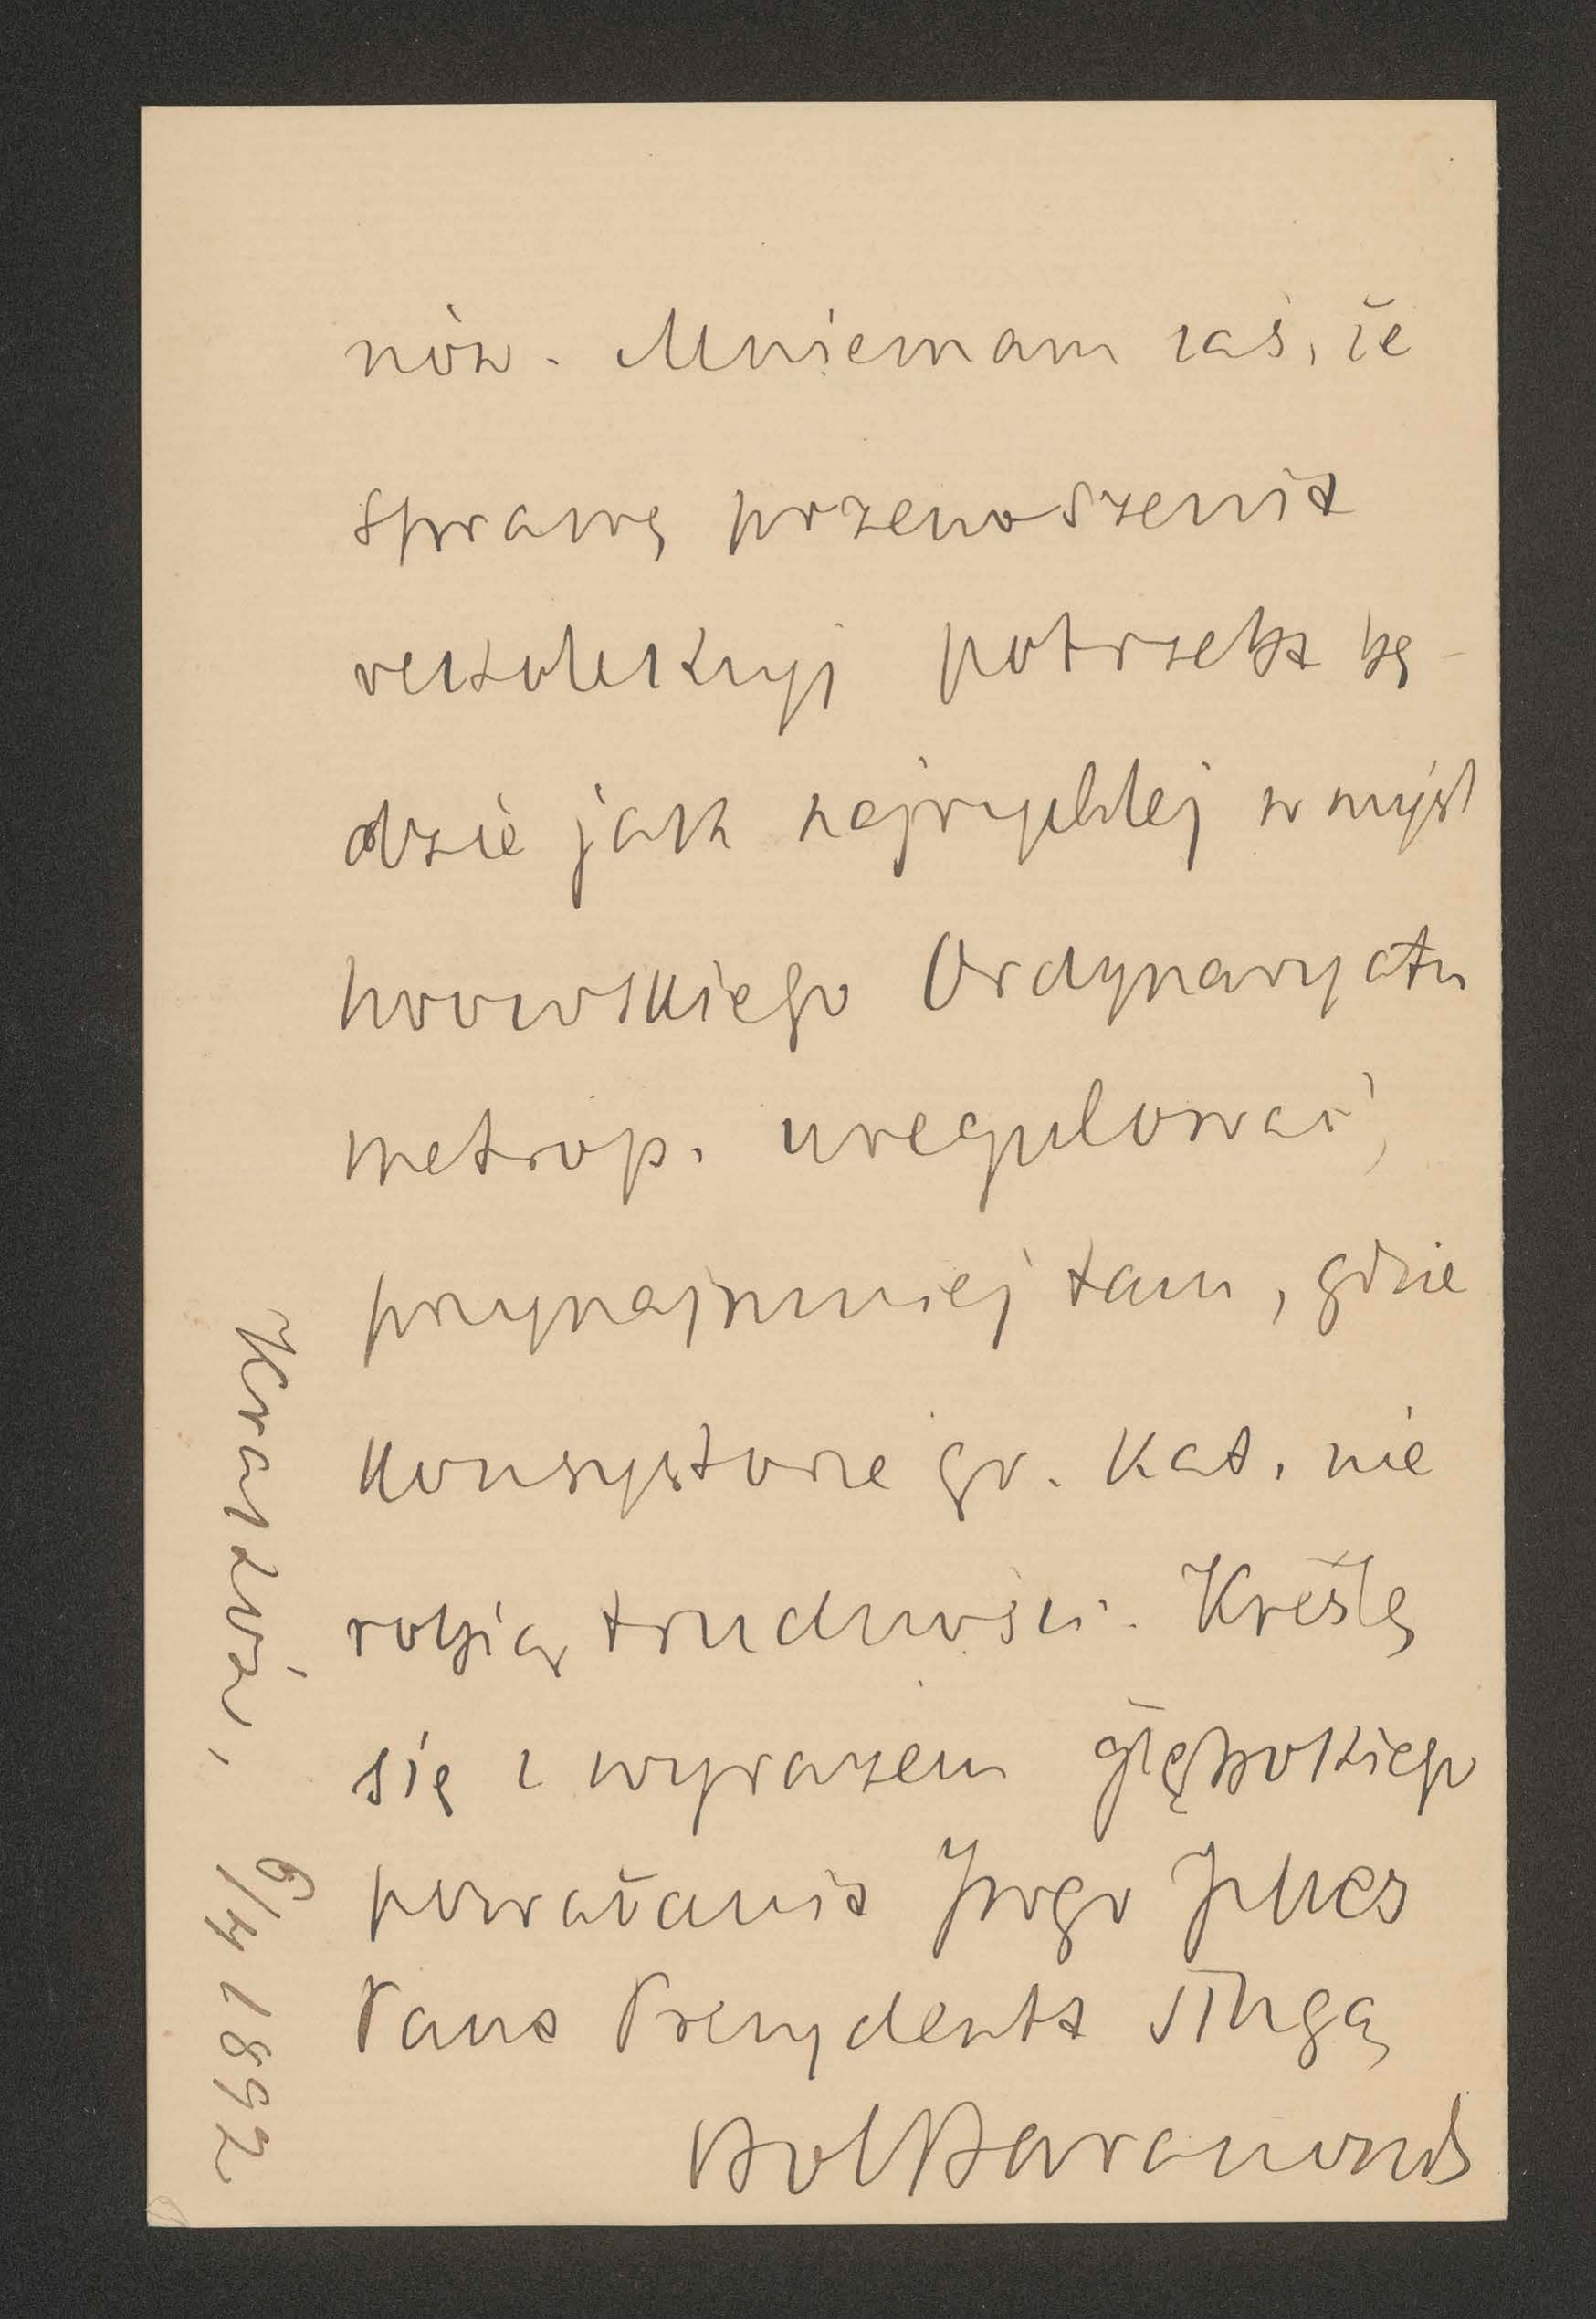 nów. Mniemam zaś, że
sprawę przenoszenia
rekolekcyj potrzeba bę-
dzie jak najrychlej w myśl
lwowskiego Ordynaryatu
metrop. uregulować,
przynajmniej tam, gdzie
Konsystorze gr. kat. nie
robią trudności. Kreślę
się z wyrazem głębokiego
poważania JWgo
Pana Prezydenta sługą
Bol Baranowski
6/4 1892